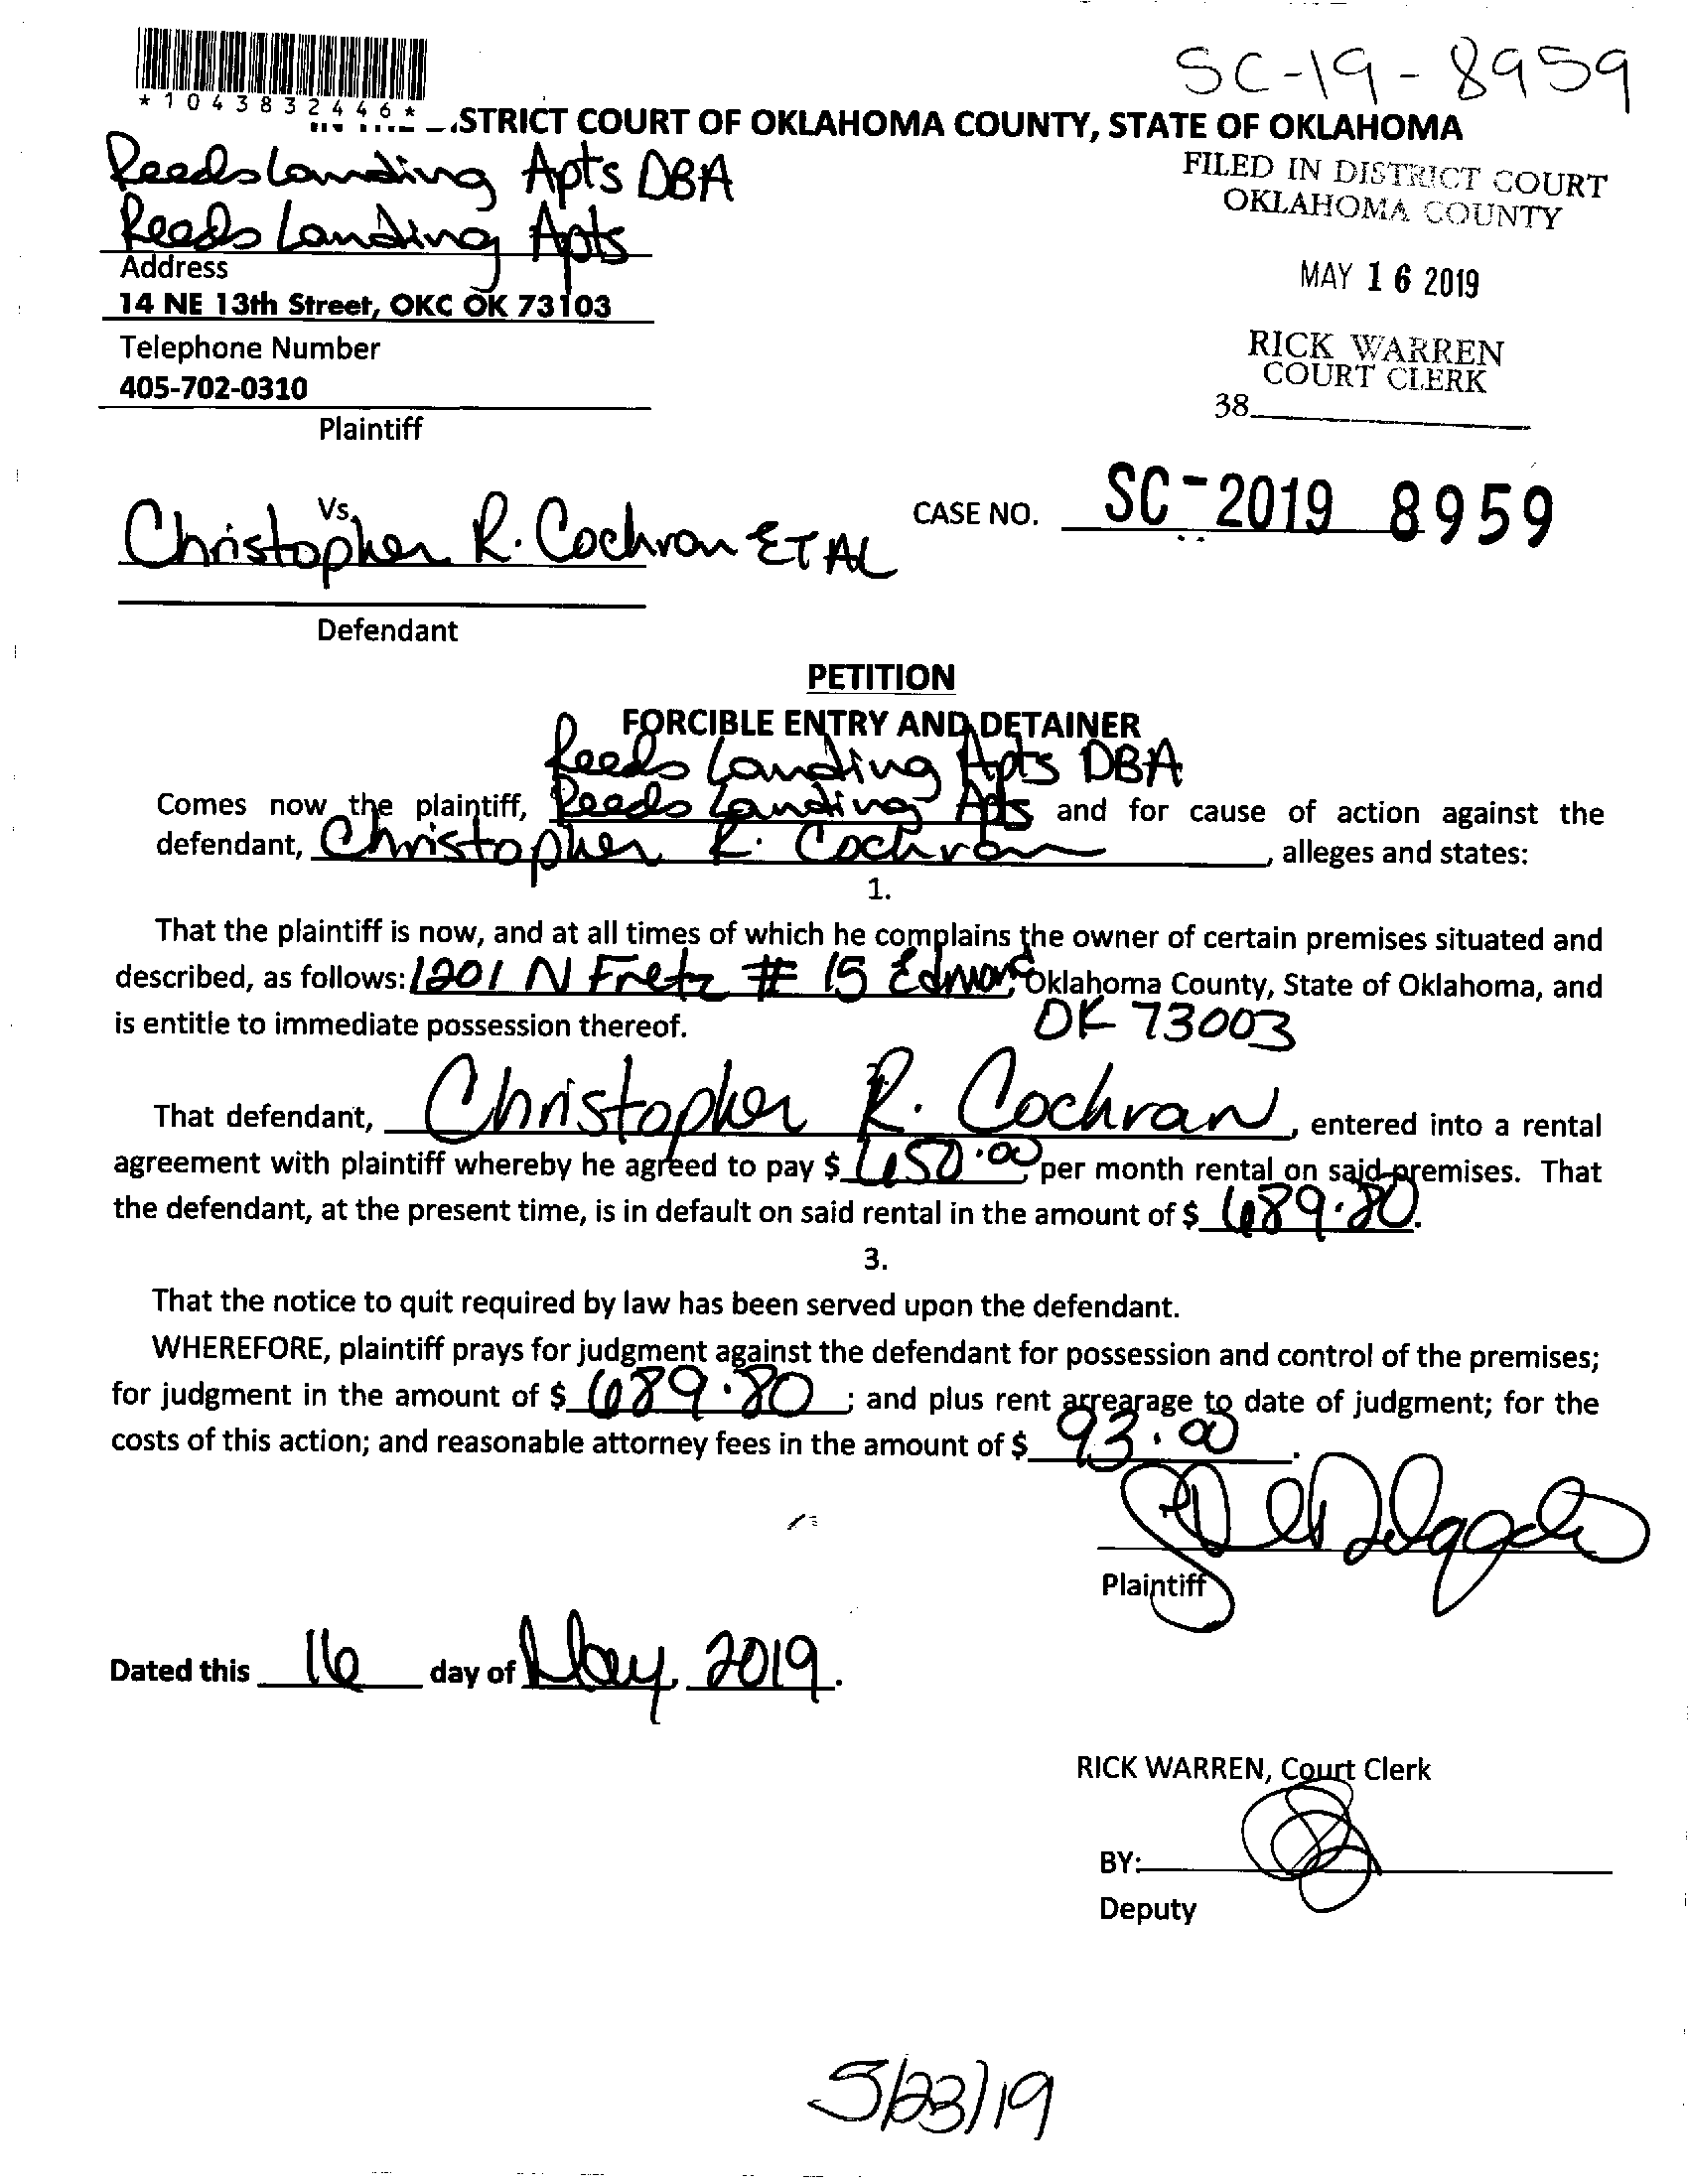 SC-19-8959
*1043832446*
STRICT COURT OF OKLAHOMA COUNTY, STATE OF OKLAHOMA
Reeds Landing Apts DBA
Reeds Landing Apts
FILED IN DISTRICT COURT
OKLAHOMA COUNTY
Address
14 NE 13th Street, OKC OK 73103
MAY 16 2019
Telephone Number
405-702-0310
RICK WARREN
COURT CLERK
38
Plaintiff
Vs.
Christopher R. Cochran ET AL
CASE NO. SC-2019 8959
Defendant
PETITION
FORCIBLE ENTRY AND DETAINER
Reeds Landing Apts DBA
Comes now the plaintiff, Reeds Landing Apts and for cause of action against the
defendant, Christopher R. Cochran, alleges and states:
1.
That the plaintiff is now, and at all times of which he complains the owner of certain premises situated and
described, as follows: 1201 N Fretz # 15 Edmond Oklahoma County, State of Oklahoma, and
is entitle to immediate possession thereof. OK 73003
That defendant, Christopher R. Cochran, entered into a rental
agreement with plaintiff whereby he agreed to pay $ 650.00 per month rental on said premises. That
the defendant, at the present time, is in default on said rental in the amount of $ 689.80.
3.
That the notice to quit required by law has been served upon the defendant.
WHEREFORE, plaintiff prays for judgment against the defendant for possession and control of the premises;
for judgment in the amount of $ 689.80; and plus rent arrearage to date of judgment; for the
costs of this action; and reasonable attorney fees in the amount of $ 93.00.
Plaintiff
Dated this 16 day of May, 2019.
RICK WARREN, Court Clerk
BY:
Deputy
5/23/19